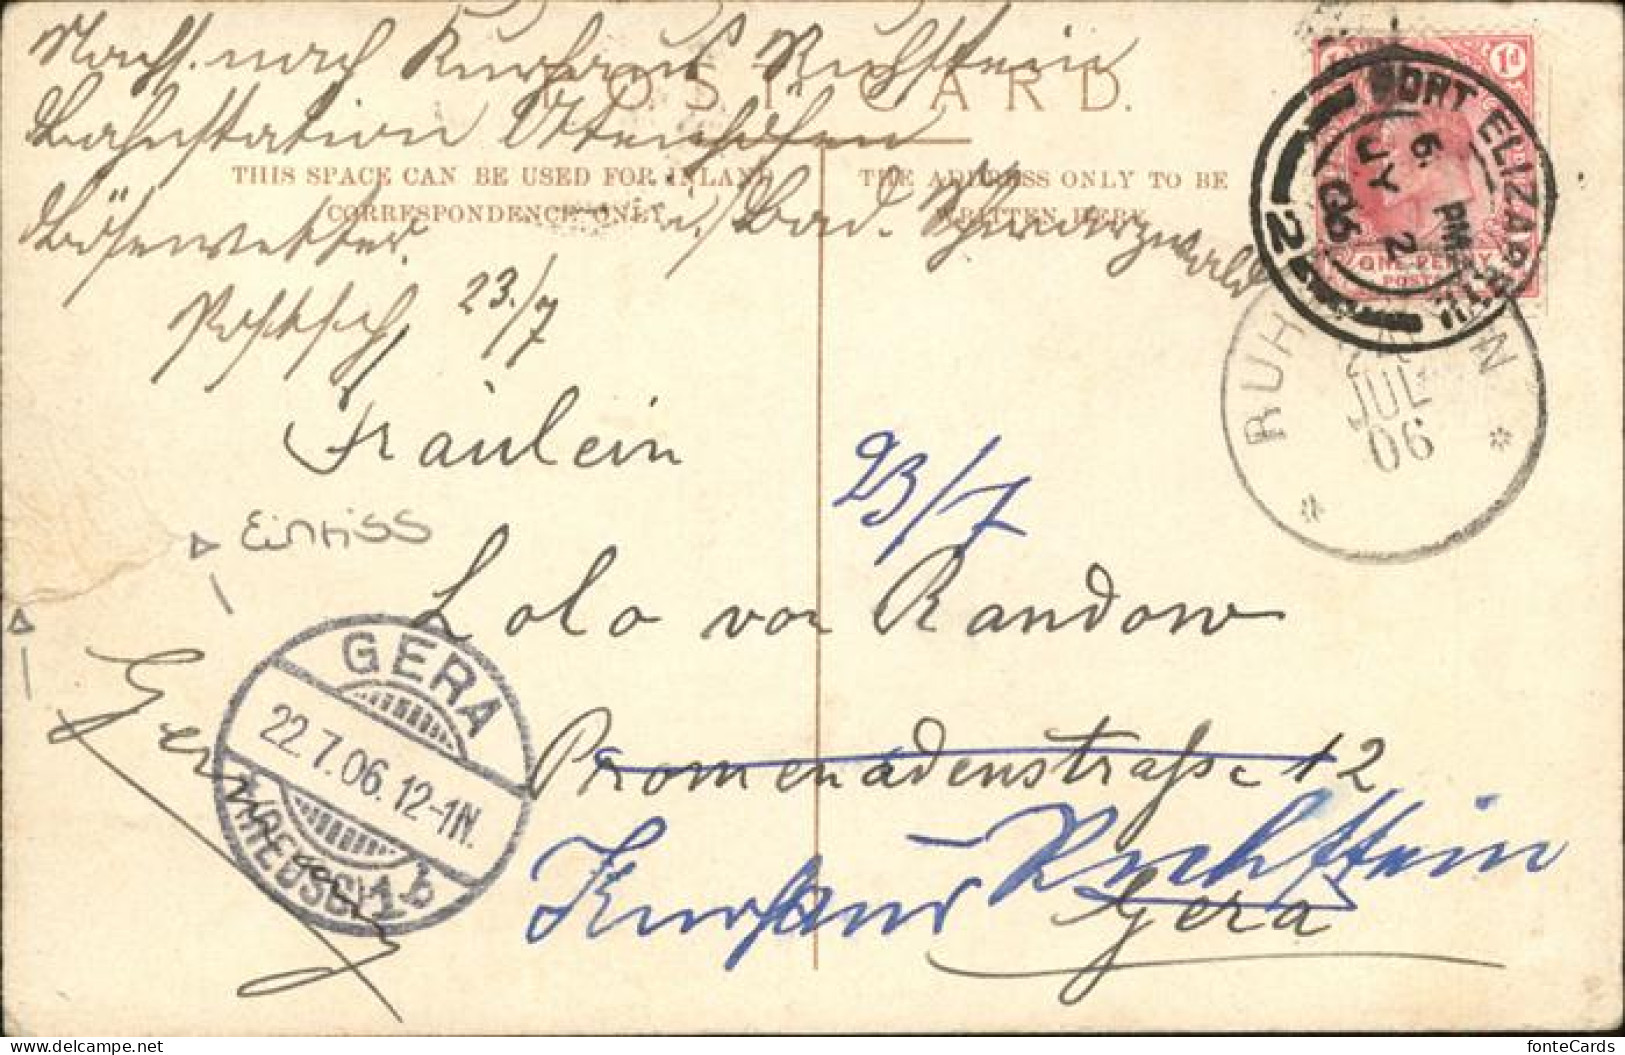 Nachs. nach Kurhaus Ruhstein
POST CARD.
Bahnstation Ottenhöfen
THIS SPACE CAN BE USED FOR INLAND
CORRESPONDENCE ONLY.
THE ADDRESS ONLY TO BE
WRITTEN HERE.
i/ Bad. Schwarzwald
23./7
1d
ONE PENNY
PORT ELIZABETH
6
JY 2
06
PM
2
RUH
JUL
06
Fräulein
23/7
Einriss
Lolo von Randow
Promenadenstraße 12
Kurhaus Ruhstein
Gera
GERA
22.7.06.12-1N.
(REUSS) 1 b
Germany
fonteCards
www.delcampe.net